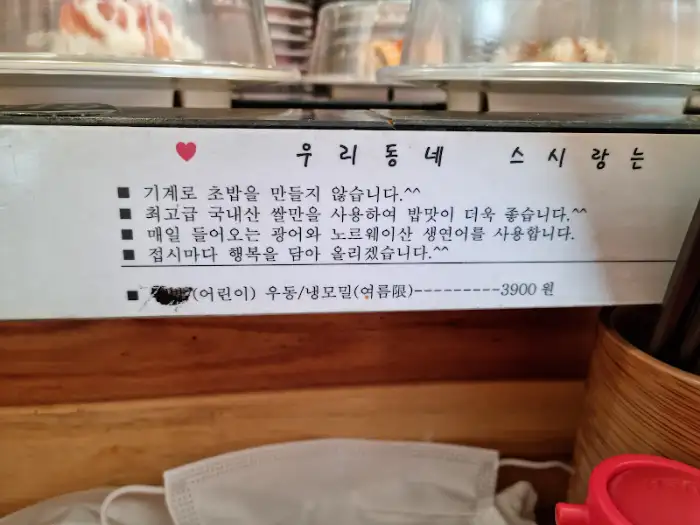 ♥ 우리동네 스시랑는
■ 기계로 초밥을 만들지 않습니다.^^
■ 최고급 국내산 쌀만을 사용하여 밥맛이 더욱 좋습니다.^^
■ 매일 들어오는 광어와 노르웨이산 생연어를 사용합니다.
■ 접시마다 행복을 담아 올리겠습니다.^^
■ (어린이) 우동/냉모밀(여름限)---------3900원